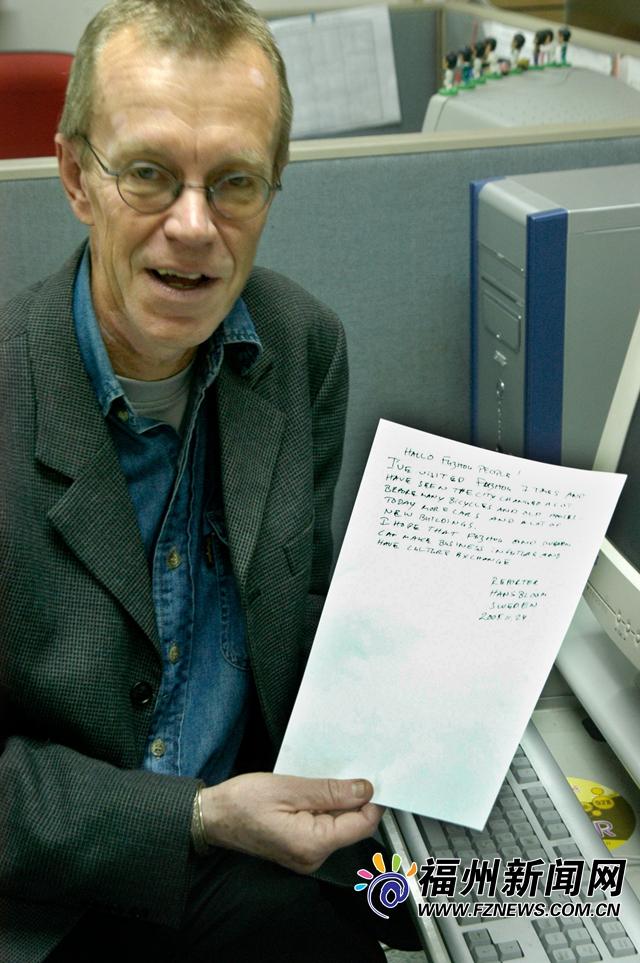 HALLO FUZHOU PEOPLE!
I'VE VISITED FUZHOU 7 TIMES AND
HAVE SEEN THE CITY CHANGED A LOT
BEFORE MANY BICYCLES AND OLD HOUSES
TODAY MORE CARS AND A LOT OF
NEW BUILDINGS.
I HOPE THAT FUZHOU AND SWEDEN
CAN MAKE BUSINESS IN FUTURE AND
HAVE CULTURE EXCHANGE
REPORTER
HANS BLOOM
SWEDEN
2005.11.24
福州新闻网
WWW.FZNEWS.COM.CN